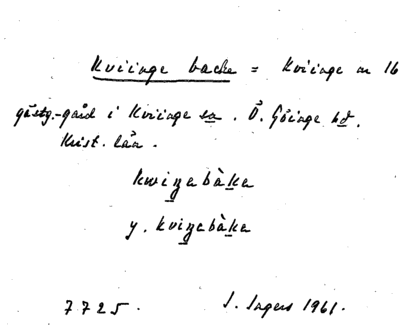 Kviinge backe = Kviinge nr 16
gästg.-gård i Kviinge sn. Ö. Göinge hd.
Krist. län.
kwiŋabàka
y. kviŋabàka
7725. J. Ingers 1961.